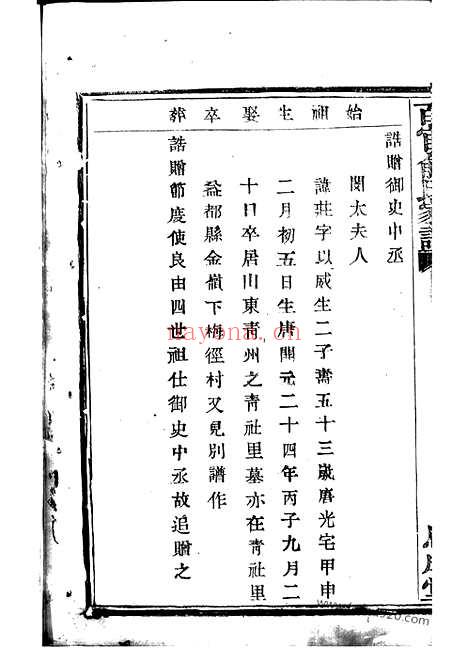 始祖生娶卒葬
誥贈御史中丞
閔太夫人
諱莊字以威生二子壽五十三歲唐光宅甲申
二月初五日生唐開元二十四年丙子九月二
十日卒居山東青州之青社里墓亦在青社里
益都縣金嶺下梅徑村又見別譜作
誥贈節度使良由四世祖仕御史中丞故追贈之
nayona.cn